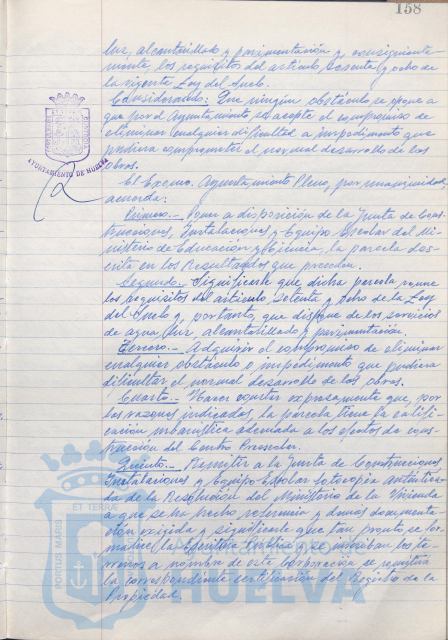 158
luz, alcantarillado y pavimentación y, consiguiente
mente los requisitos del artículo setenta y ocho de
la vigente Ley del Suelo.
Considerando: Que ningún obstáculo se opone a
que por el Ayuntamiento, se acepte el compromiso de
eliminar cualquier dificultad o impedimento que
pudiera comprometer el normal desarrollo de las
obras.
El Excmo. Ayuntamiento Pleno, por unanimidad,
acuerda:
Primero.- Poner a disposición de la Junta de Cons
trucciones, Instalaciones y Equipo Escolar del Mi
nisterio de Educación y Ciencia, la parcela des
crita en los Resultandos que preceden.
Segundo.- Significarle que dicha parcela reune
los requisitos del artículo setenta y ocho de la Ley
del Suelo y, por tanto, que dispone de los servicios
de agua, luz, alcantarillado y pavimentación.
Tercero.- Adquirir el compromiso de eliminar
cualquier obstáculo o impedimento que pudiera
dificultar el normal desarrollo de las obras.
Cuarto.- Hacer constar expresamente que, por
las razones indicadas, la parcela tiene la califi
cación urbanística adecuada a los efectos de cons
trucción del Centro Preescolar.
Quinto.- Remitir a la Junta de Construcciones
Instalaciones y Equipo Escolar fotocopia autentica
da de la Resolución del Ministerio de la Vivienda
a que se ha hecho referencia y demás documenta
ción exigida y significarle que tan pronto se for
malice la Escritura Pública y se inscriban los te
rrenos a nombre de esta Corporación se remitirá
la correspondiente certificación del Registro de la
Propiedad.
AYUNTAMIENTO DE HUELVA
PORTUS MARIS
ET TERRAE
AYUNTAMIENTO DE
HUELVA